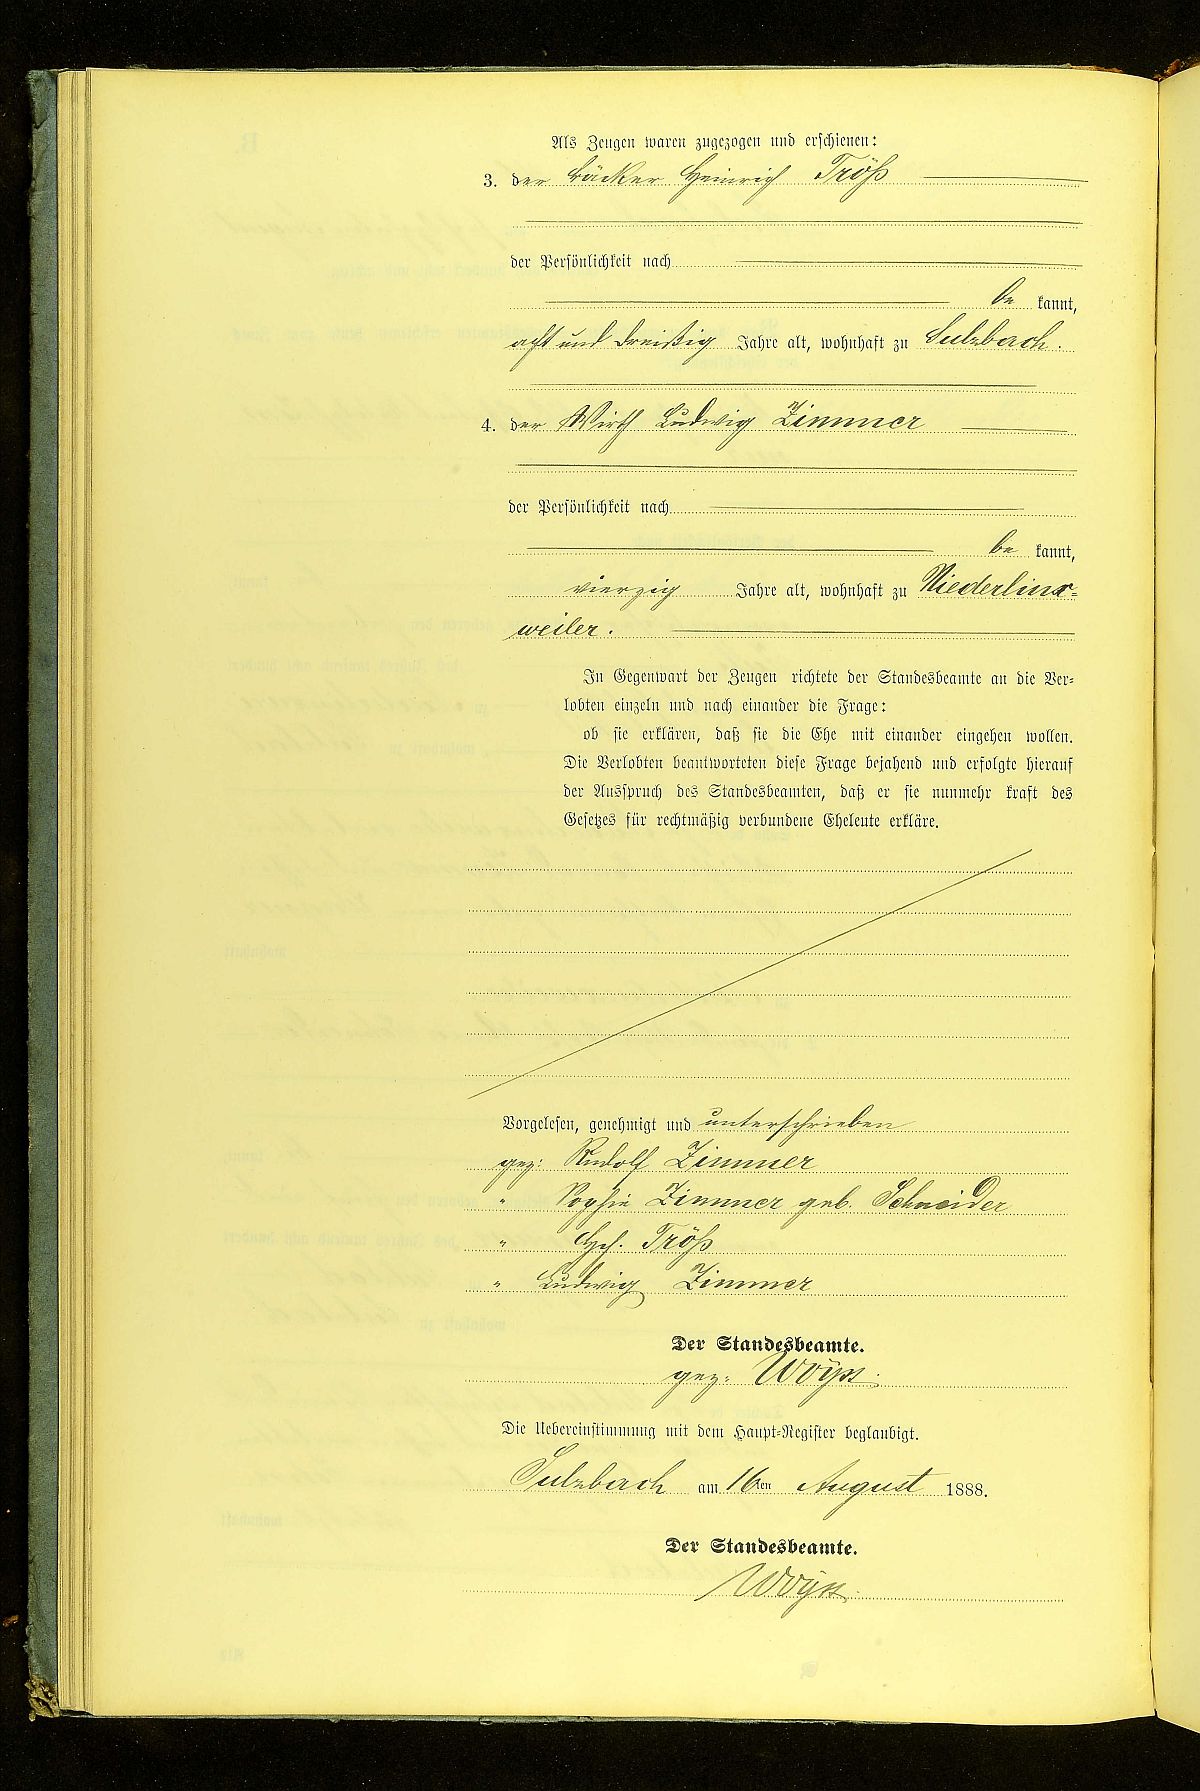 Als Zeugen waren zugezogen und erschienen:
3. der Bäcker Heinrich Tröß
der Persönlichkeit nach
be kannt,
acht und dreißig Jahre alt, wohnhaft zu Sulzbach.
4. der Wirth Ludwig Zimmer
der Persönlichkeit nach
be kannt,
vierzig Jahre alt, wohnhaft zu Niederlinx-
weiler.
In Gegenwart der Zeugen richtete der Standesbeamte an die Ver-
lobten einzeln und nach einander die Frage:
ob sie erklären, daß sie die Ehe mit einander eingehen wollen.
Die Verlobten beantworteten diese Frage bejahend und erfolgte hierauf
der Ausspruch des Standesbeamten, daß er sie nunmehr kraft des
Gesetzes für rechtmäßig verbundene Eheleute erkläre.
Vorgelesen, genehmigt und unterschrieben
gez: Rudolf Zimmer
" Sophie Zimmer geb. Schneider
" Hch. Tröß
" Ludwig Zimmer
Der Standesbeamte.
gez:
Die Uebereinstimmung mit dem Haupt-Register beglaubigt.
Sulzbach am 16ten August 1888.
Der Standesbeamte.